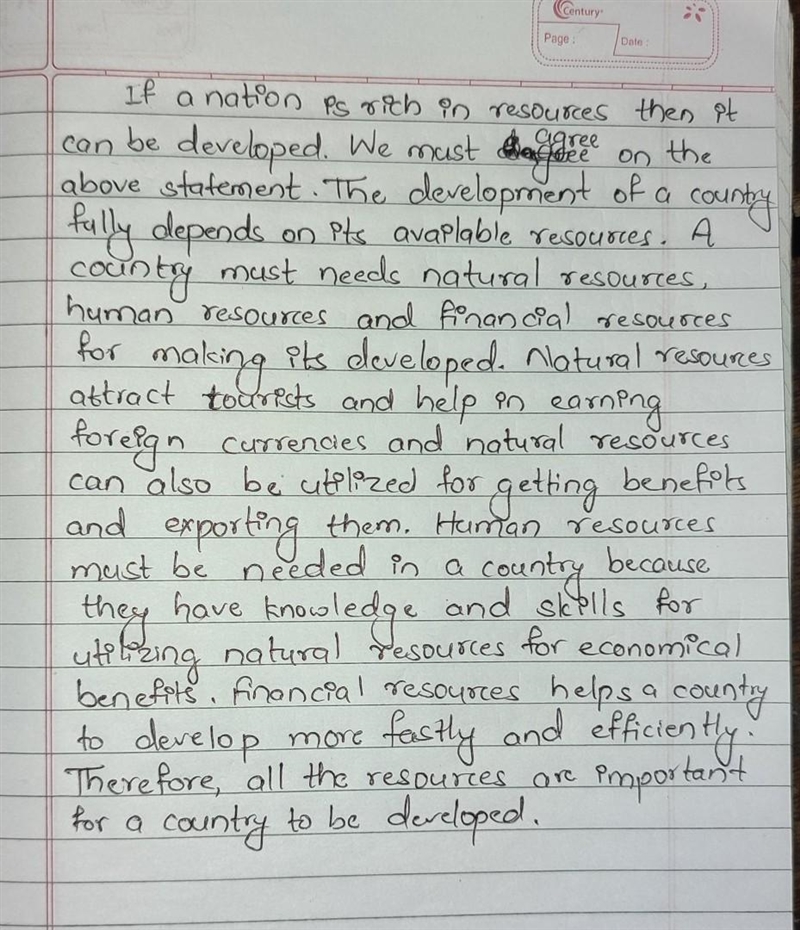 Century
Page :
Date :
If a nation is rich in resources then it
can be developed. We must agree on the
above statement. The development of a country
fully depends on its available resources. A
country must needs natural resources,
human resources and financial resources
for making its developed. Natural resources
attract tourists and help in earning
foreign currencies and natural resources
can also be utilized for getting benefits
and exporting them. Human resources
must be needed in a country because
they have knowledge and skills for
utilizing natural resources for economical
benefits. financial resources helps a country
to develop more fastly and efficiently.
Therefore, all the resources are important
for a country to be developed.